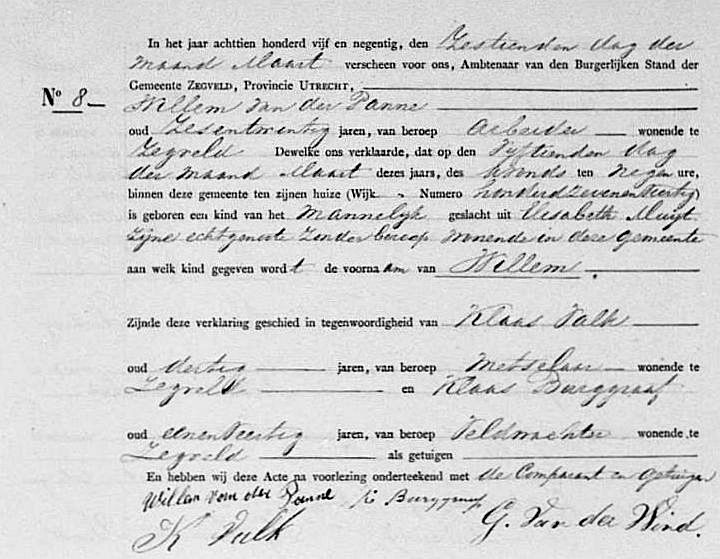 In het jaar achttien honderd vijf en negentig, den Zestienden dag der
maand Maart verscheen voor ons, Ambtenaar van den Burgerlijken Stand der
Gemeente ZEGVELD, Provincie UTRECHT,
No 8 Willem van der Panne
oud Zesentwintig jaren, van beroep Arbeider wonende te
Zegveld Dewelke ons verklaarde, dat op den Vyftienden dag
der maand Maart dezes jaars, des avonds ten negen ure,
binnen deze gemeente ten zijnen huize (Wijk - Numero honderd zevenenveertig)
is geboren een kind van het Mannelyk geslacht uit Elisabeth Muyt
zijne echtgenoote zonder beroep wonende in deze gemeente
aan welk kind gegeven wordt de voornaam van Willem.
Zijnde deze verklaring geschied in tegenwoordigheid van Klaas Valk
oud dertig jaren, van beroep Metselaar wonende te
Zegveld en Klaas Burggraaf
oud eenenveertig jaren, van beroep Veldwachter wonende te
Zegveld als getuigen
En hebben wij deze Acte na voorlezing onderteekend met de Comparant en getuigen
Willem van der Panne K Burggraaf
K Valk G. Van der Wind.